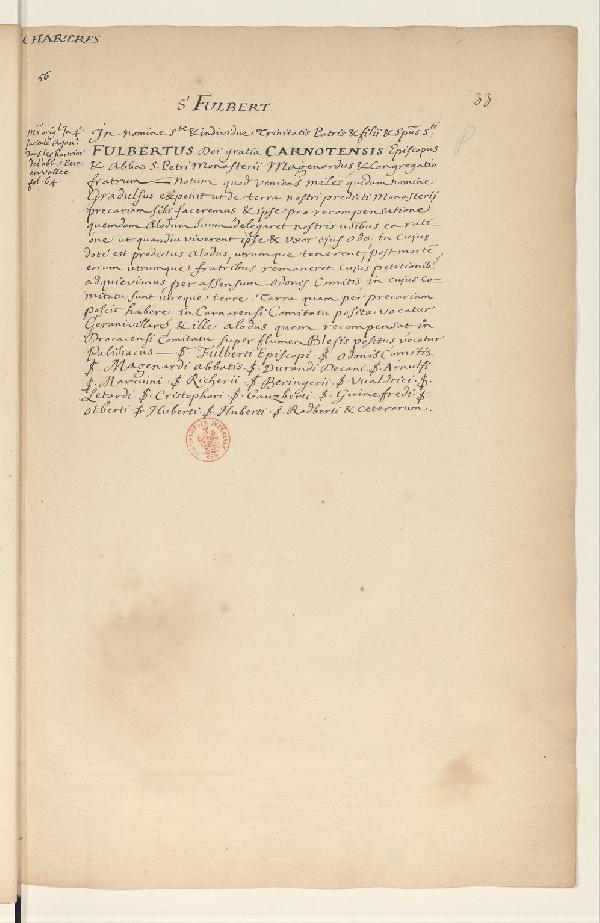 CHARTRES
56
33
St FULBERT
In nomine Ste & individue Trinitatis Patris & filii & Spus Sti
FULBERTUS Dei gratia CARNOTENSIS Episcopus
& Abbas S. Petri Monasterii Magenardus & Congregatio
fratrum — notum quod Venit as miles quidam nomine
Gradulfus expetiit ut de terra nostri predicti Monasterii
precariam sibi faceremus & ipse pro recompensatione
quemdam Alodum suum delegaret nostris usibus ea rati-
one ut quandiu viverent ipse & uxor ejus Oda, in Cujus
dote est predictus Alodus, utrumque tenerent, post mortē
eorum utrumque fratribus remaneret. Cujus petitionibs
adquievimus per assensum Odonis Comitis in cujus Co-
mitatu sunt utreque terre. Terra quam per precariam
poscit habere in Carnotensi Comitatu posita vocatur
Geranivillare, & ille alodus quem recompensat in
Drocacensi Comitatu super flumen Blesis positus vocatur
Puliniacus — S. Fulberti Episcopi. S. Odonis Comitis.
S. Magenardi abbatis. S. Durandi Decani. S. Arnulfi
S. Marcuini. S. Richerii. S. Beringerii. S. Vualdrici. S.
Letardi. S. Cristephori. S. Gauzberti. S. Guinefredi. S.
Otberti. S. Huberti. S. Huberti. S. Radberti & Ceterorum.